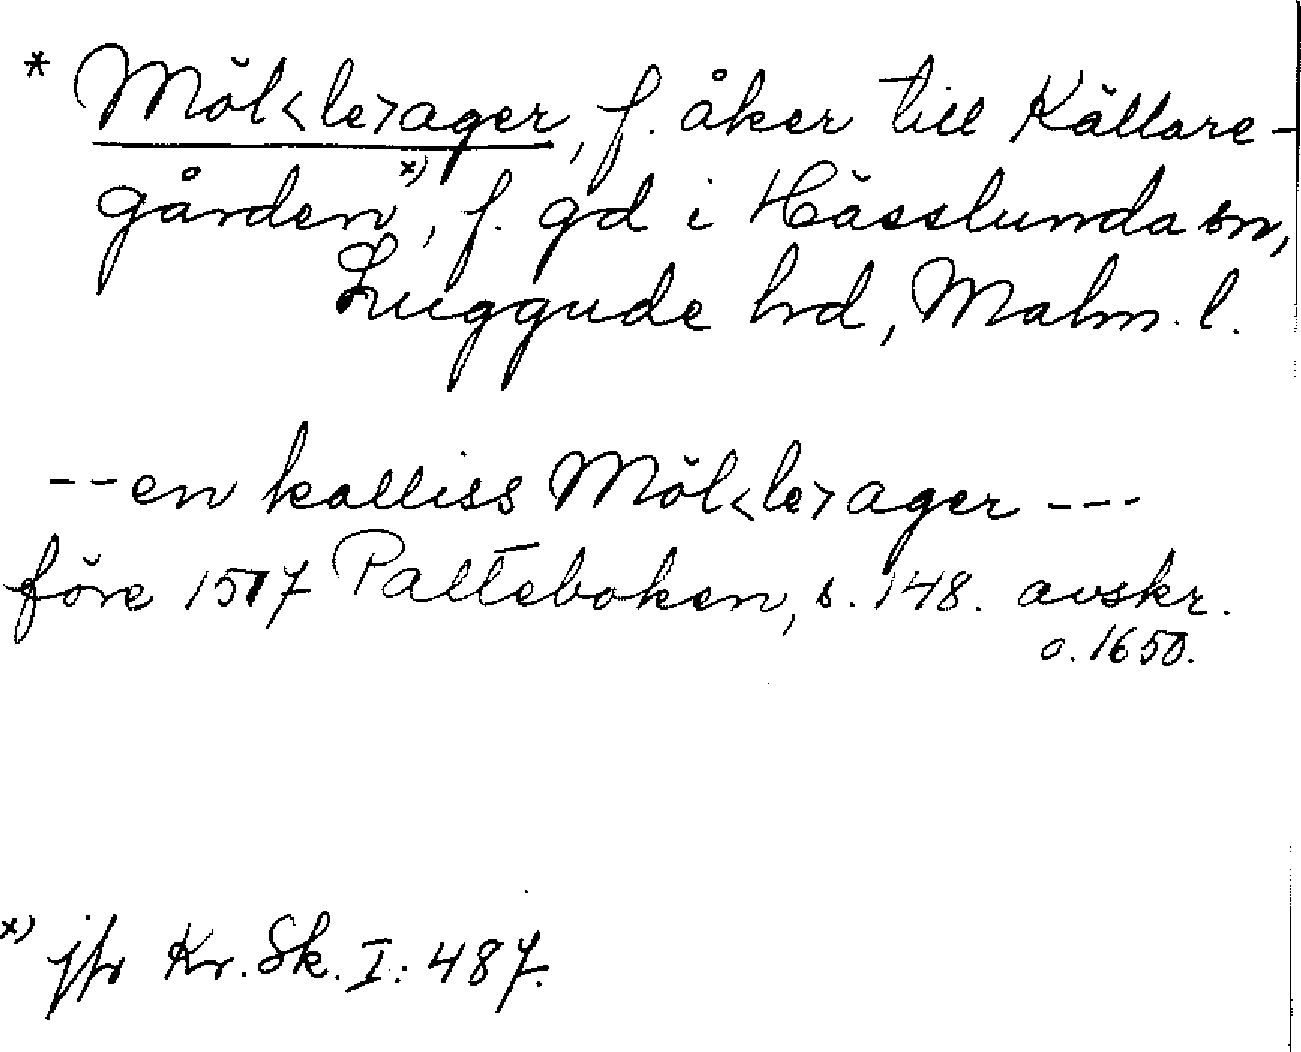 * Möl<le>ager, f. åker till Källare-
gården x), f. gd i Hässlunda sn,
Luggude hd, Malm. l.
-- en kalliss Möl<le>ager ---
före 1517 Palteboken, s. 148. avskr.
o. 1650.
x) jfr Kr. Sk. I: 487.